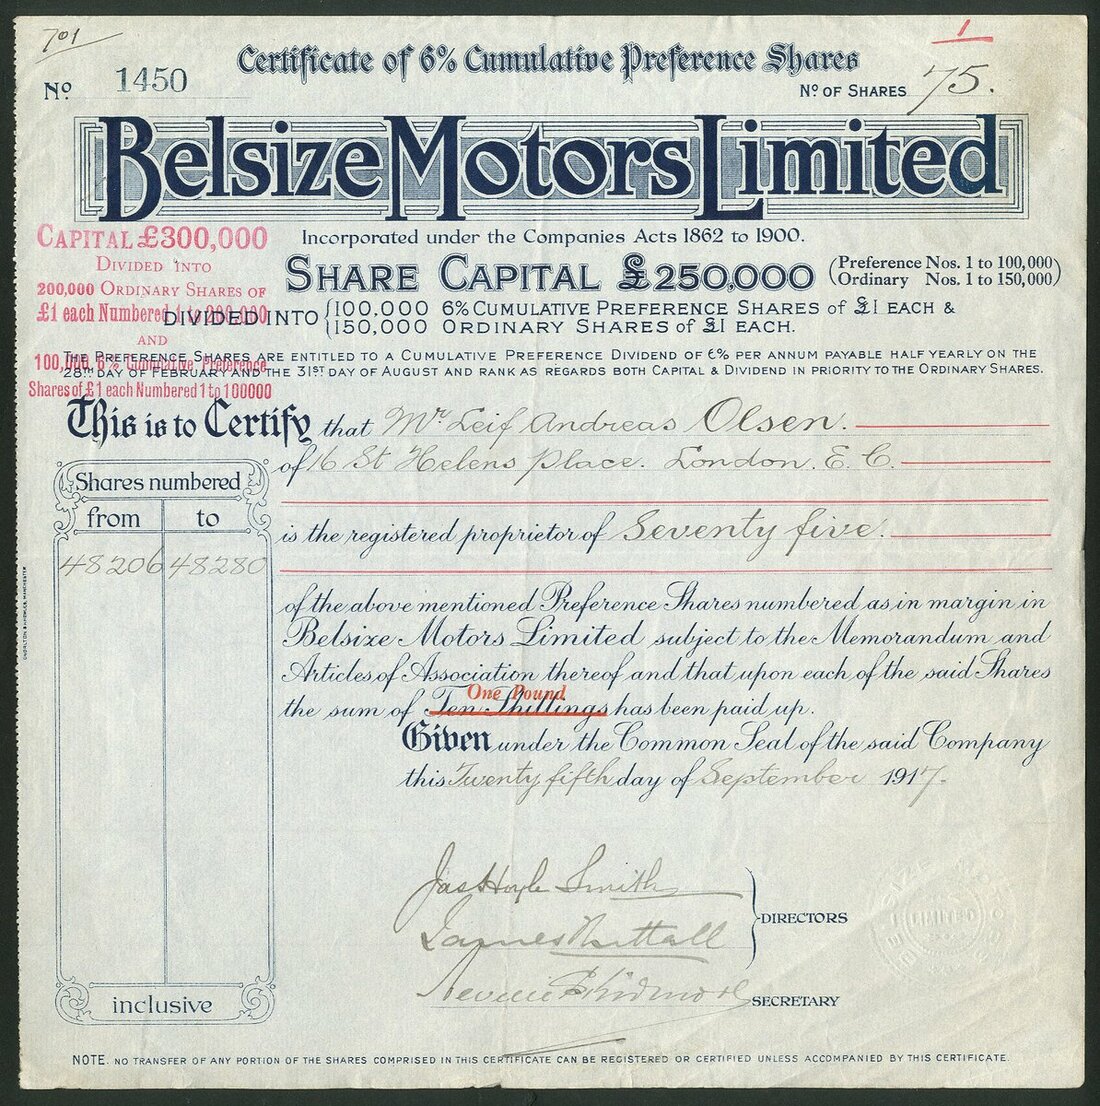 701
1
Certificate of 6% Cumulative Preference Shares
No 1450
No OF SHARES 75.
Belsize Motors Limited
CAPITAL £300,000
DIVIDED INTO
200,000 ORDINARY SHARES OF
£1 each Numbered 1 to 200,000
AND
100,000, 6% Cumulative Preference
Shares of £1 each Numbered 1 to 100000
Incorporated under the Companies Acts 1862 to 1900.
SHARE CAPITAL £250,000 (Preference Nos. 1 to 100,000)
(Ordinary Nos. 1 to 150,000)
DIVIDED INTO {100.000 6% CUMULATIVE PREFERENCE SHARES of £1 EACH &
150,000 ORDINARY SHARES of £1 EACH.
THE PREFERENCE SHARES ARE ENTITLED TO A CUMULATIVE PREFERENCE DIVIDEND OF 6% PER ANNUM PAYABLE HALF YEARLY ON THE
28TH DAY OF FEBRUARY AND THE 31ST DAY OF AUGUST AND RANK AS REGARDS BOTH CAPITAL & DIVIDEND IN PRIORITY TO THE ORDINARY SHARES.
This is to Certify that Mr Leif Andreas Olsen.
of 16 St Helens Place. London. E. C.
is the registered proprietor of Seventy five.
Shares numbered
from to
48206 48280
inclusive
of the above mentioned Preference Shares numbered as in margin in
Belsize Motors Limited subject to the Memorandum and
Articles of Association thereof and that upon each of the said Shares
One Pound
the sum of Ten Shillings has been paid up.
Given under the Common Seal of the said Company
this Twenty fifth day of September 1917.
Jas Hoyle Smith
James Nuttall
DIRECTORS
SECRETARY
LIMITED
NOTE. NO TRANSFER OF ANY PORTION OF THE SHARES COMPRISED IN THIS CERTIFICATE CAN BE REGISTERED OR CERTIFIED UNLESS ACCOMPANIED BY THIS CERTIFICATE.